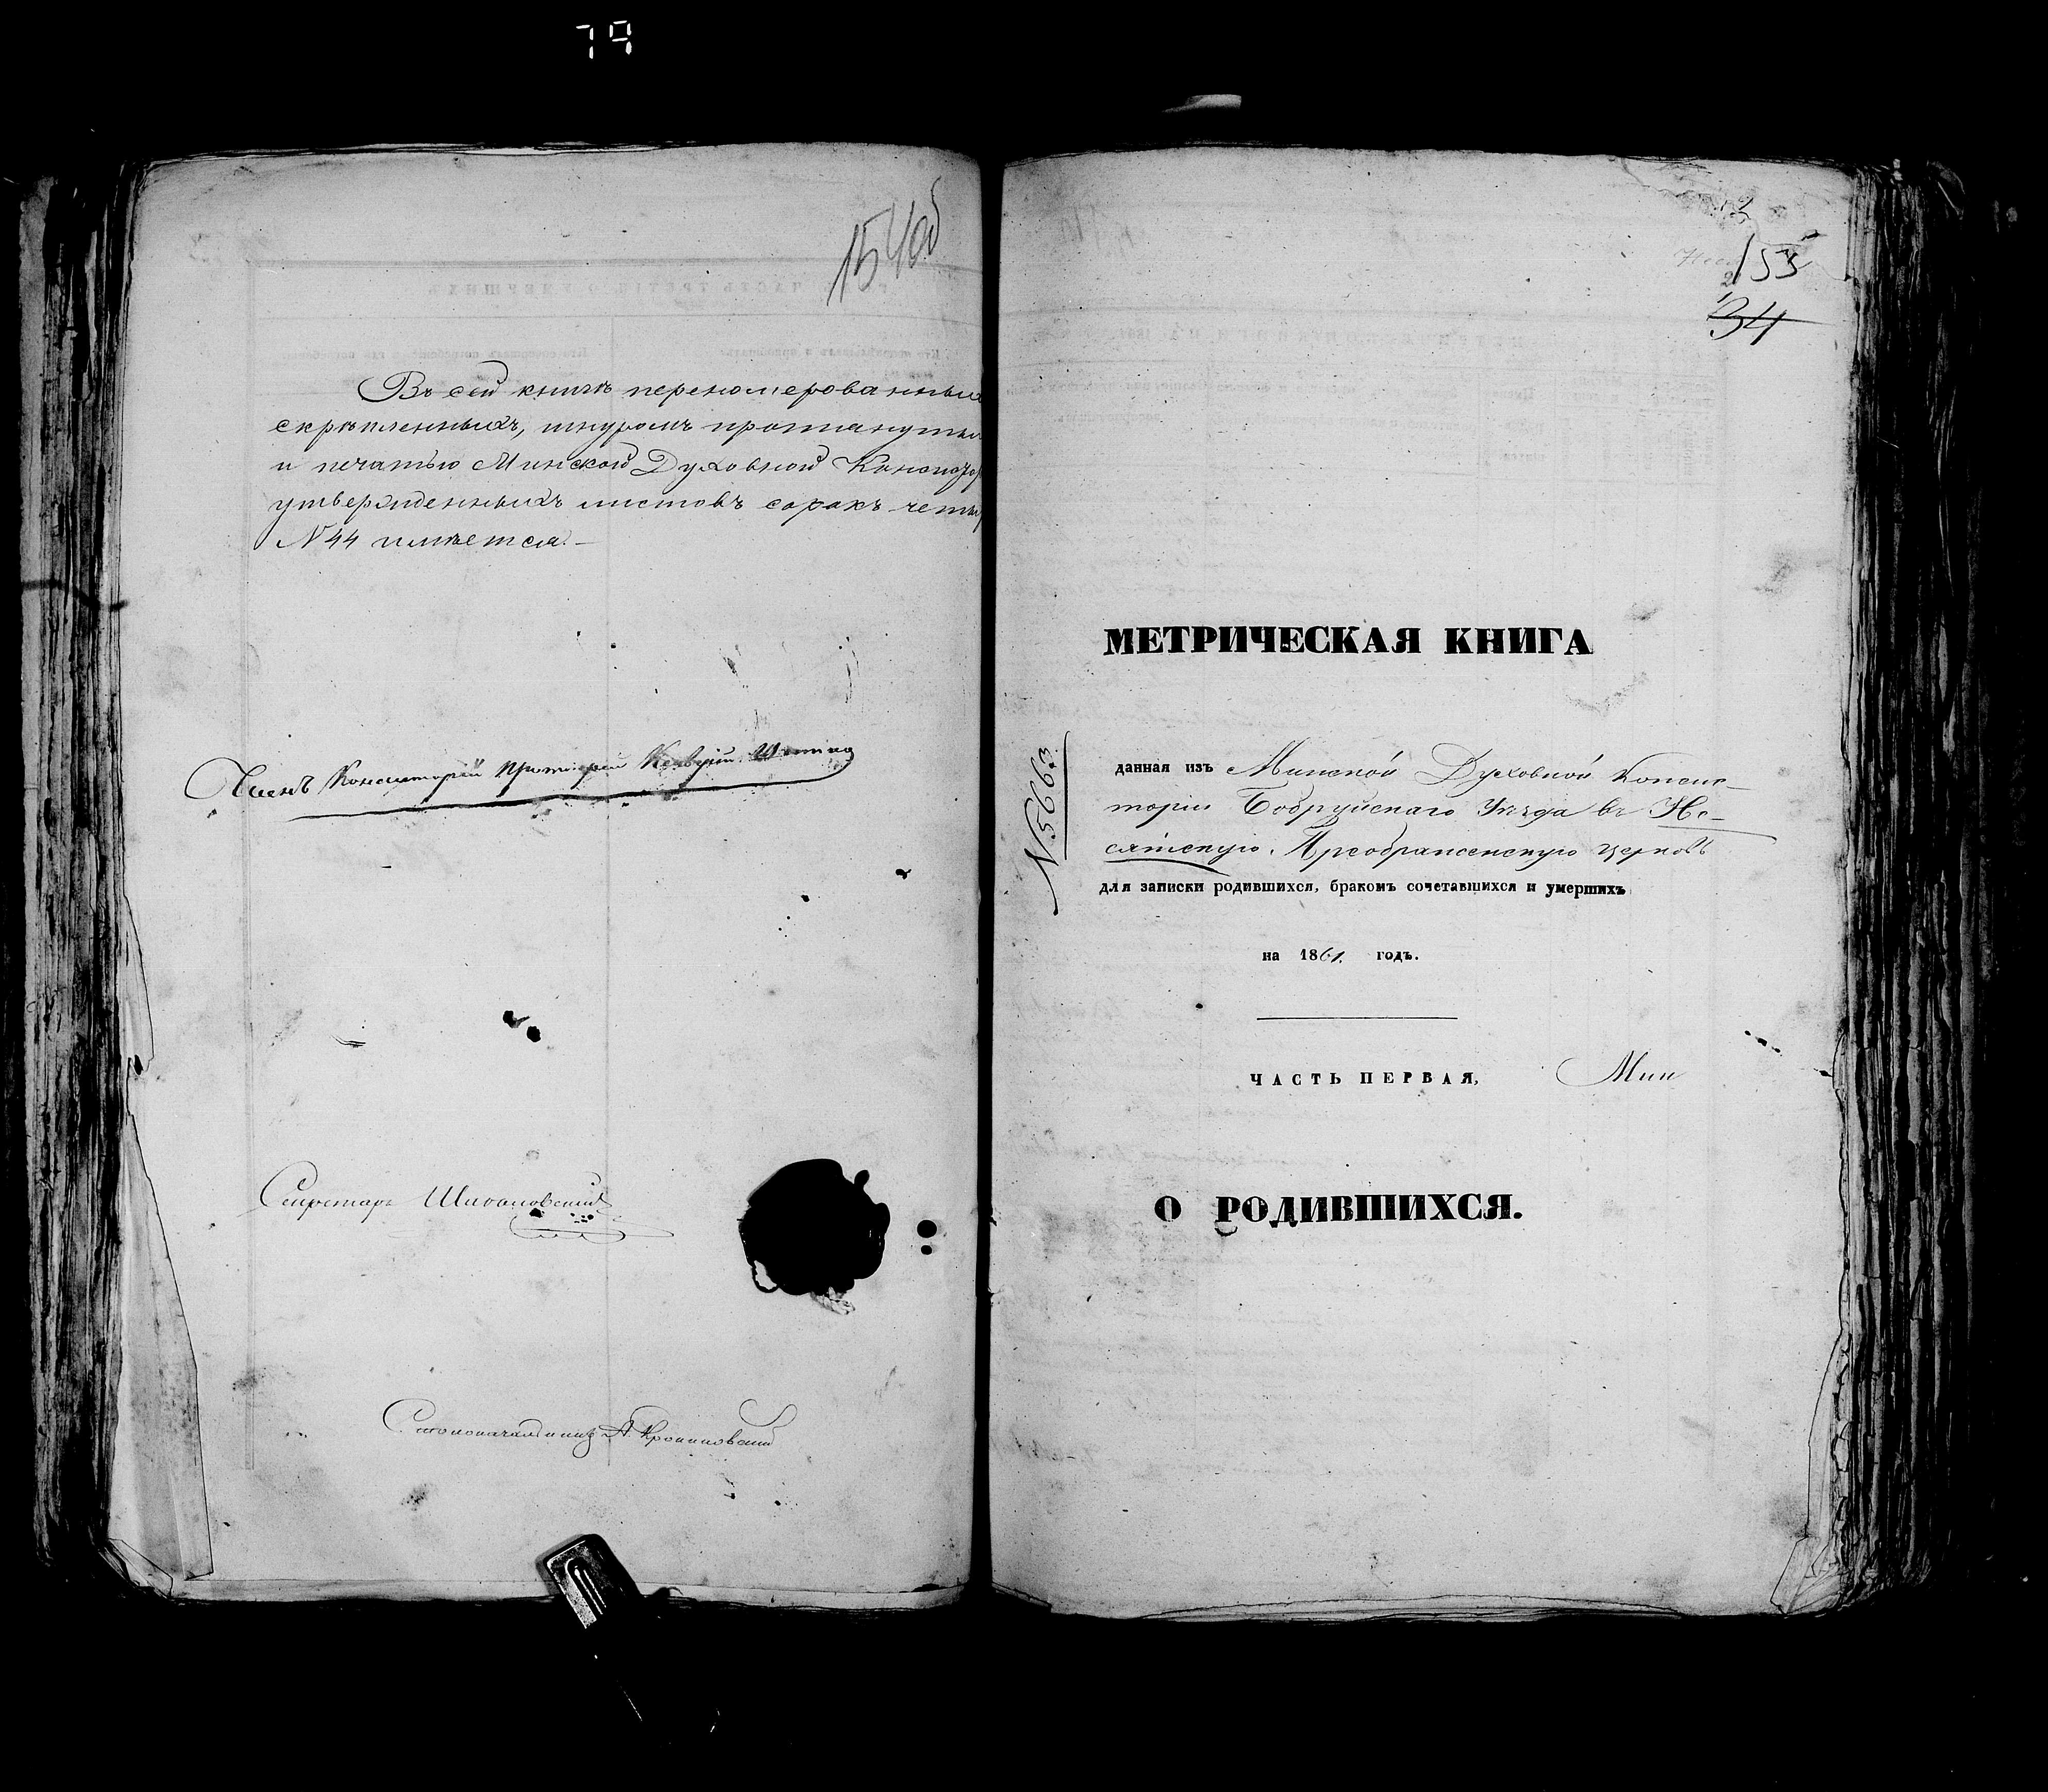 79
154об
Въ сей книгѣ перенумерованныхъ
скрѣпленныхъ, шнуромъ протянутых
и печатью Минской Духовной Консистор
утвержденныхъ листовъ сорокъ четыр
№ 44 имѣется.
Членъ Консисторіи Протоіерей
Секретарь
Столоначальникъ А.
155
34
МЕТРИЧЕСКАЯ КНИГА
№ 5663
данная изъ Минской Духовной Консис-
торіи Бобруйскаго Уѣзда въ Не-
сятскую Преображенскую церковь
для записки родившихся, бракомъ сочетавшихся и умершихъ
на 1861. годъ.
ЧАСТЬ ПЕРВАЯ,
Мин
О РОДИВШИХСЯ.